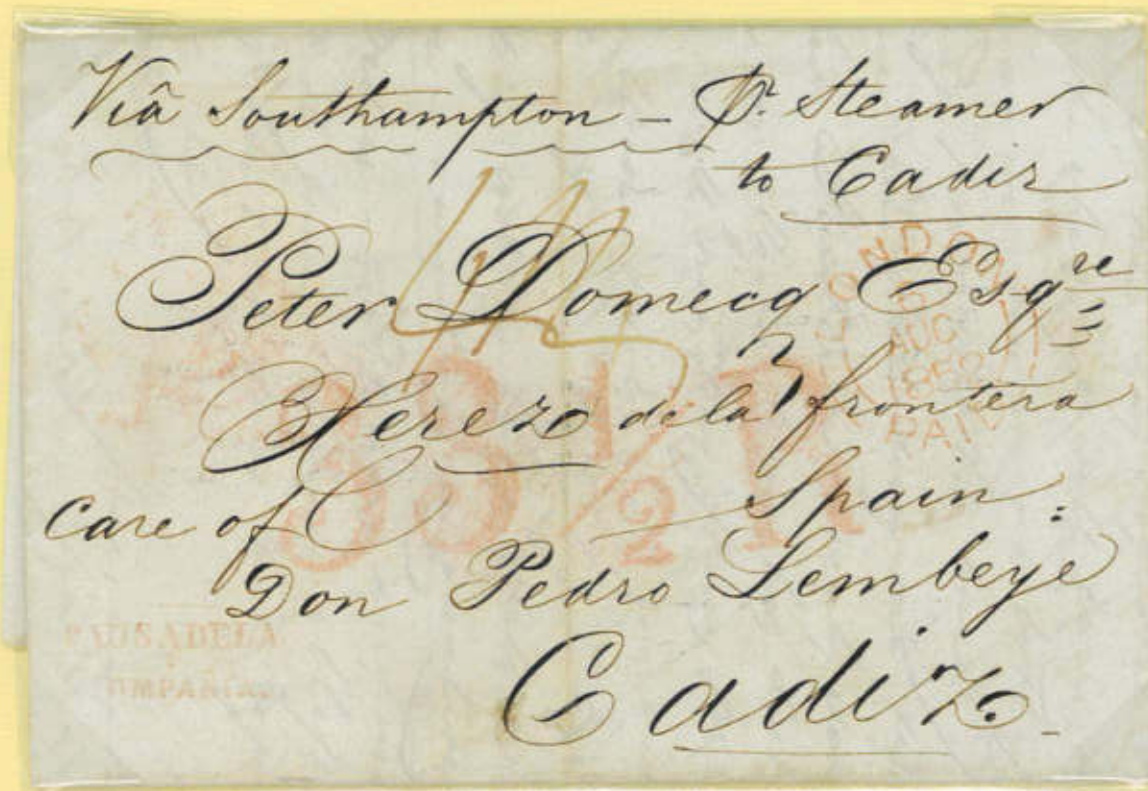 Viâ Southampton – Pr. Steamer
to Cadiz
Peter Domecq Esqre
Xerez de la frontera
Spain.
Care of
Don Pedro Lembeye
Cadiz.
LONDON
AUG
PAID
3 1/2 R
PAUSADELA
OMPAÑIA.